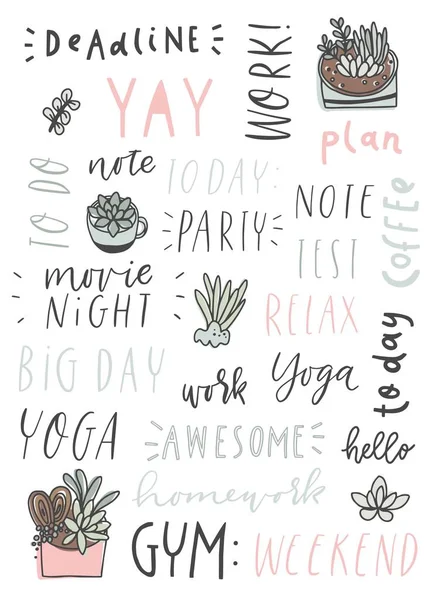 DEADLINE
WORK!
YAY
plan
TO DO
note
TODAY:
NOTE
COFFEE
PARTY
TEST
movie
NIGHT
RELAX
today
BIG DAY
work
Yoga
YOGA
AWESOME
hello
homework
GYM:
WEEKEND